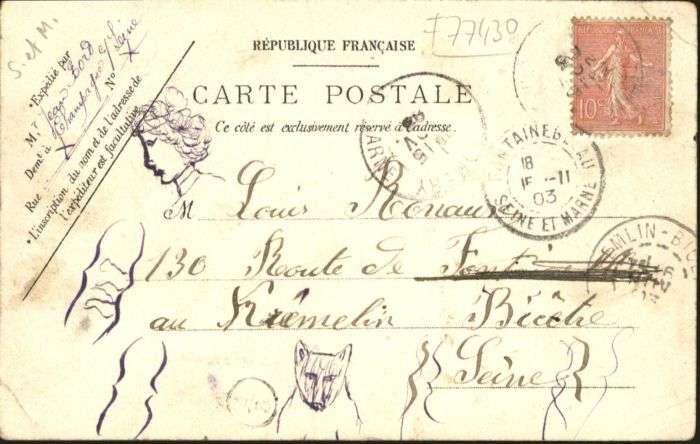 S. et M.
F77430
RÉPUBLIQUE FRANÇAISE
CARTE POSTALE
Ce côté est exclusivement réservé à l'adresse.
•Expédié par
M.
Demt à Champagne s/ Seine
Rue Nº
•L'inscription du nom et de l'adresse de
l'expéditeur est facultative
10c
FONTAINEBLEAU
18
15 -11
03
SEINE ET MARNE
MARNE
M Louis Renaux
130 Route de
au Kremelin Bicétre
Seine